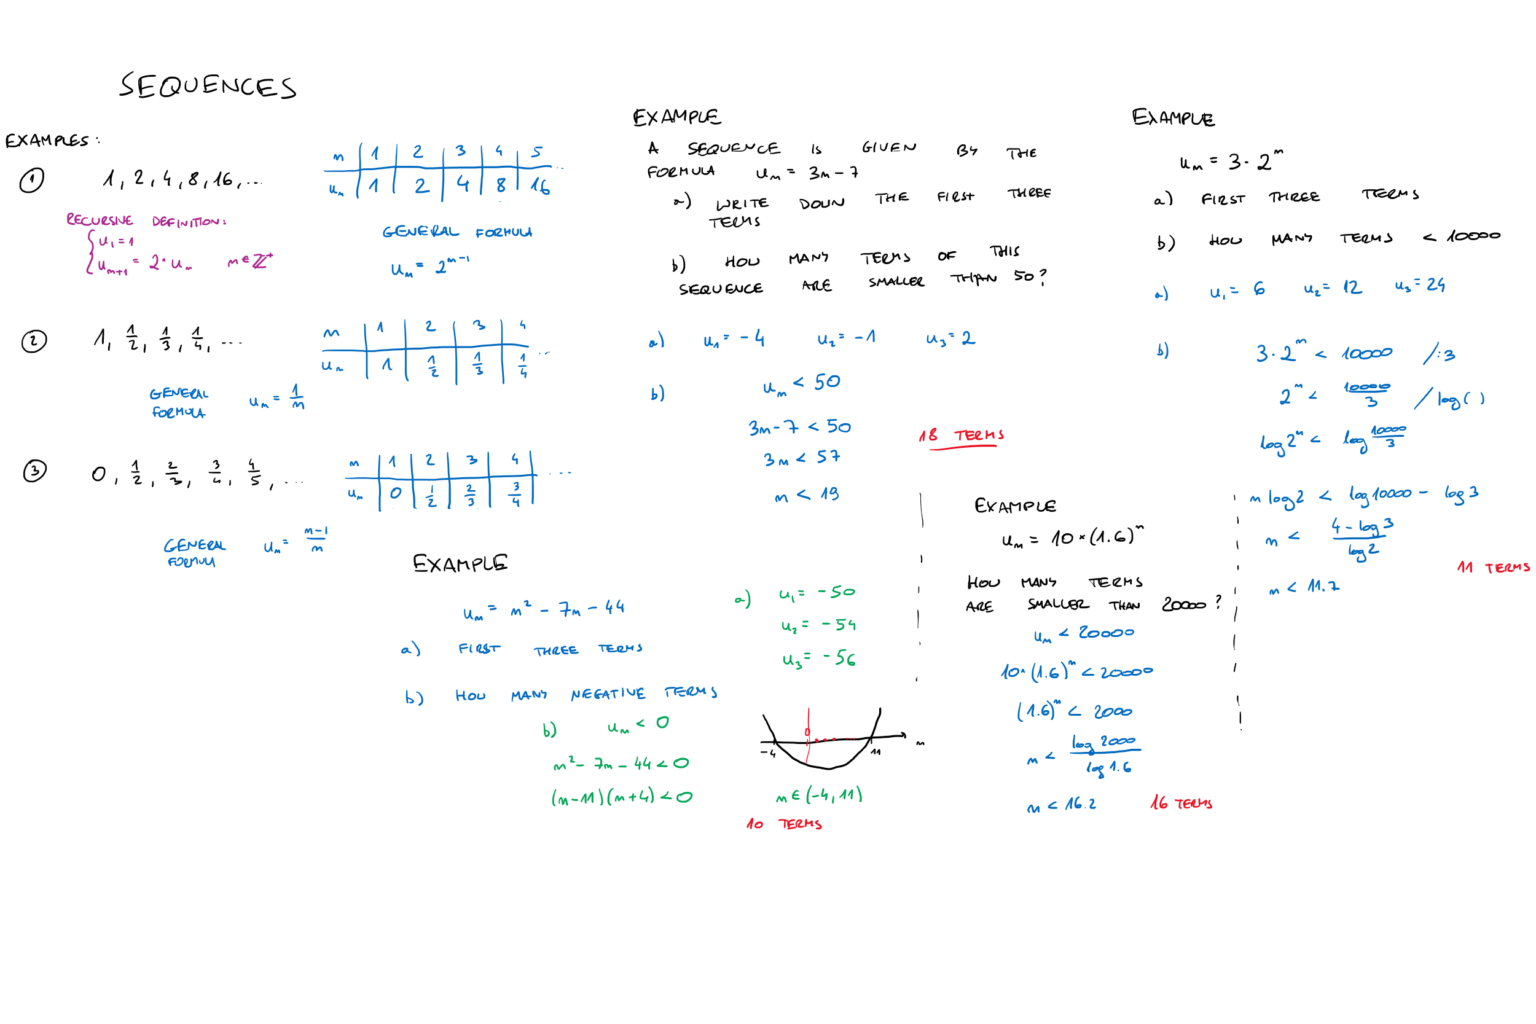 SEQUENCES
EXAMPLES:
① 1, 2, 4, 8, 16, ...
n | 1 | 2 | 3 | 4 | 5 ...
uₙ | 1 | 2 | 4 | 8 | 16
RECURSIVE DEFINITION:
{ u₁ = 1
uₙ₊₁ = 2 · uₙ n ∈ ℤ⁺
GENERAL FORMULA
uₙ = 2ⁿ⁻¹
② 1, 1/2, 1/3, 1/4, ...
n | 1 | 2 | 3 | 4
uₙ | 1 | 1/2 | 1/3 | 1/4 ...
GENERAL
FORMULA uₙ = 1/n
③ 0, 1/2, 2/3, 3/4, 4/5, ...
n | 1 | 2 | 3 | 4 | ...
uₙ | 0 | 1/2 | 2/3 | 3/4
GENERAL
FORMULA uₙ = (n-1)/n
EXAMPLE
uₙ = n² - 7n - 44
a) FIRST THREE TERMS
b) HOW MANY NEGATIVE TERMS
a) u₁ = -50
u₂ = -54
u₃ = -56
b) uₙ < 0
n² - 7n - 44 < 0
(n-11)(n+4) < 0
-4 0 11 n
n ∈ (-4, 11)
10 TERMS
EXAMPLE
A SEQUENCE IS GIVEN BY THE
FORMULA uₙ = 3n - 7
a) WRITE DOWN THE FIRST THREE
TERMS
b) HOW MANY TERMS OF THIS
SEQUENCE ARE SMALLER THAN 50?
a) u₁ = -4 u₂ = -1 u₃ = 2
b) uₙ < 50
3n - 7 < 50
3n < 57
n < 19
18 TERMS
EXAMPLE
uₙ = 10 × (1.6)ⁿ
HOW MANY TERMS
ARE SMALLER THAN 20000?
uₙ < 20000
10 × (1.6)ⁿ < 20000
(1.6)ⁿ < 2000
n < log 2000 / log 1.6
n < 16.2 16 TERMS
EXAMPLE
uₙ = 3 · 2ⁿ
a) FIRST THREE TERMS
b) HOW MANY TERMS < 10000
a) u₁ = 6 u₂ = 12 u₃ = 24
b) 3 · 2ⁿ < 10000 /:3
2ⁿ < 10000/3 /log( )
log 2ⁿ < log 10000/3
n log 2 < log 10000 - log 3
n < (4 - log 3)/log 2
n < 11.7
11 TERMS